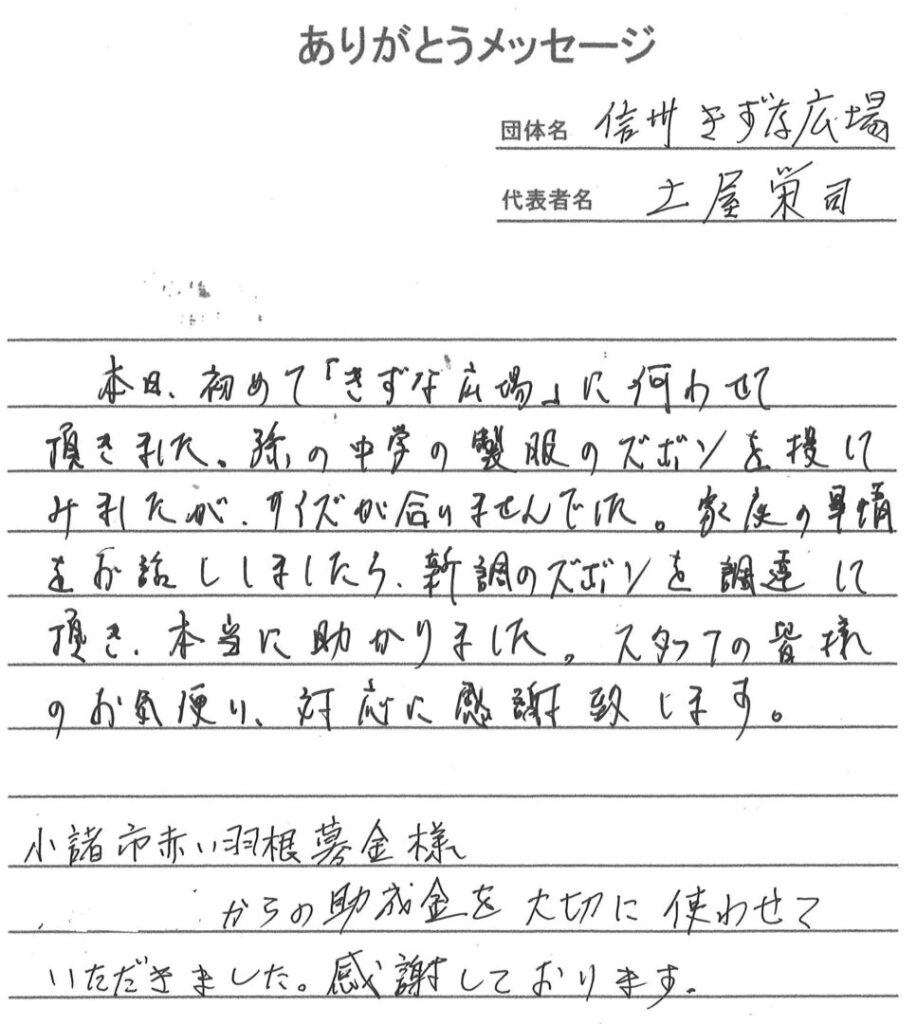 ありがとうメッセージ
団体名 信州きずな広場
代表者名 土屋栄司
本日、初めて「きずな広場」に伺わせて
頂きました。孫の中学の製服のズボンを捜して
みましたが、サイズが合いませんでした。家庭の事情
をお話ししましたら、新調のズボンを調達して
頂き、本当に助かりました。スタッフの皆様
のお気使い、対応に感謝致します。
小諸市赤い羽根募金様
からの助成金を大切に使わせて
いただきました。感謝しております。